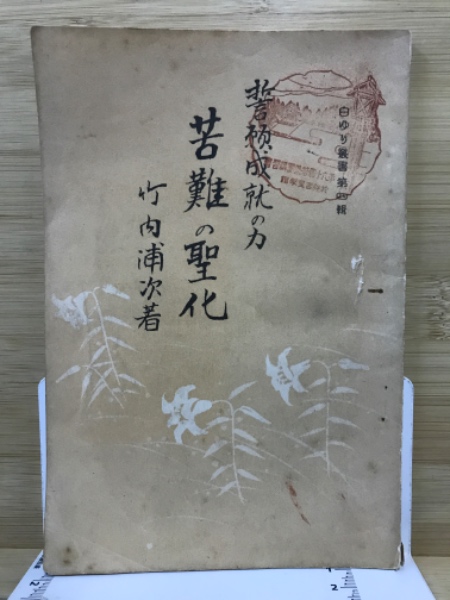 白ゆり叢書第四輯
誓願成就の力
苦難の聖化
竹内浦次著
1
2
2